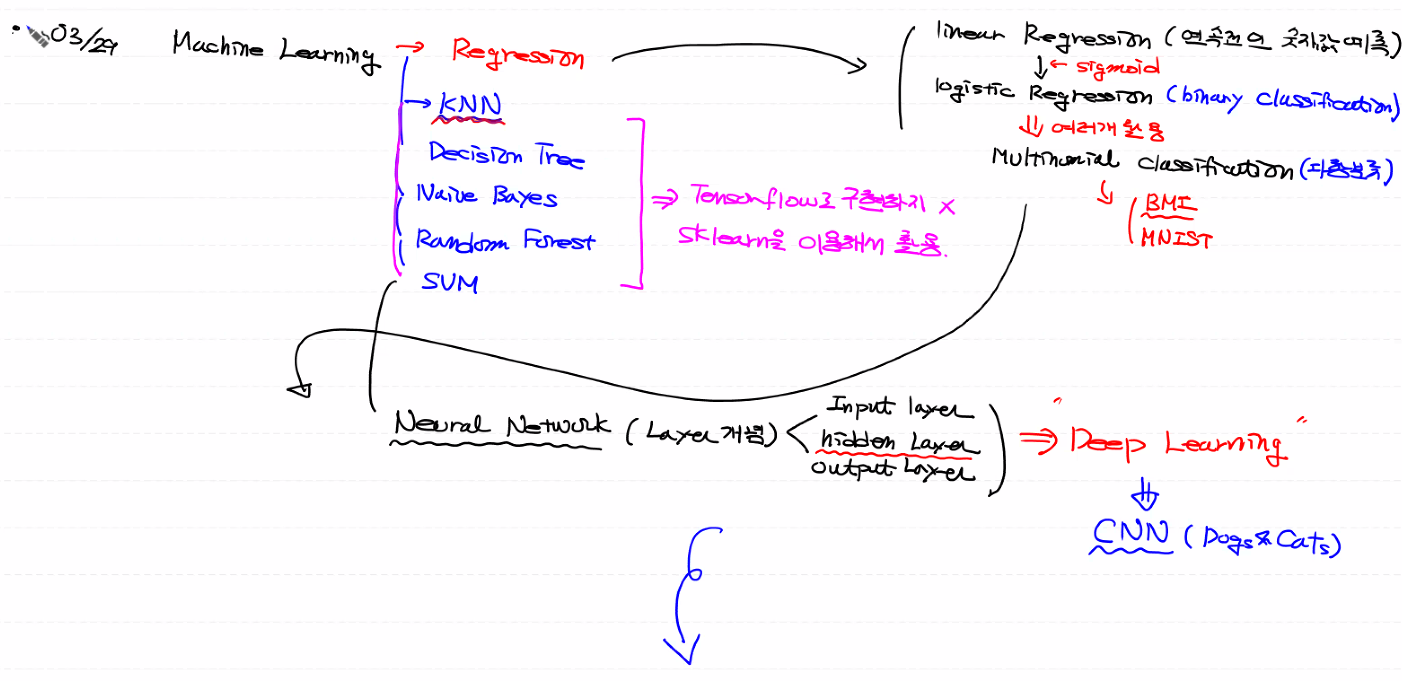 03/29 Machine Learning → Regression
linear Regression (연속적인 숫자값 예측)
↓ ← sigmoid
logistic Regression (binary classification)
⇓ 여러개 활용
Multinomial classification (다중분류)
BMI
MNIST
KNN
Decision Tree
Naive Bayes
Random Forest
SVM
⇒ Tensorflow로 구현하지 X
sklearn을 이용해서 활용.
Neural Network (Layer개념)
Input layer
hidden Layer
output Layer
⇒ "Deep Learning"
CNN (Dogs & Cats)